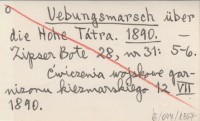 Uebungsmarsch über
die Hohe Tátra. 1890. —
Zipser Bote 28, nr 31: 5-6.
Ćwiczenia wojskowe gar-
nizonu kiezmarskiego 12 VII
1890.